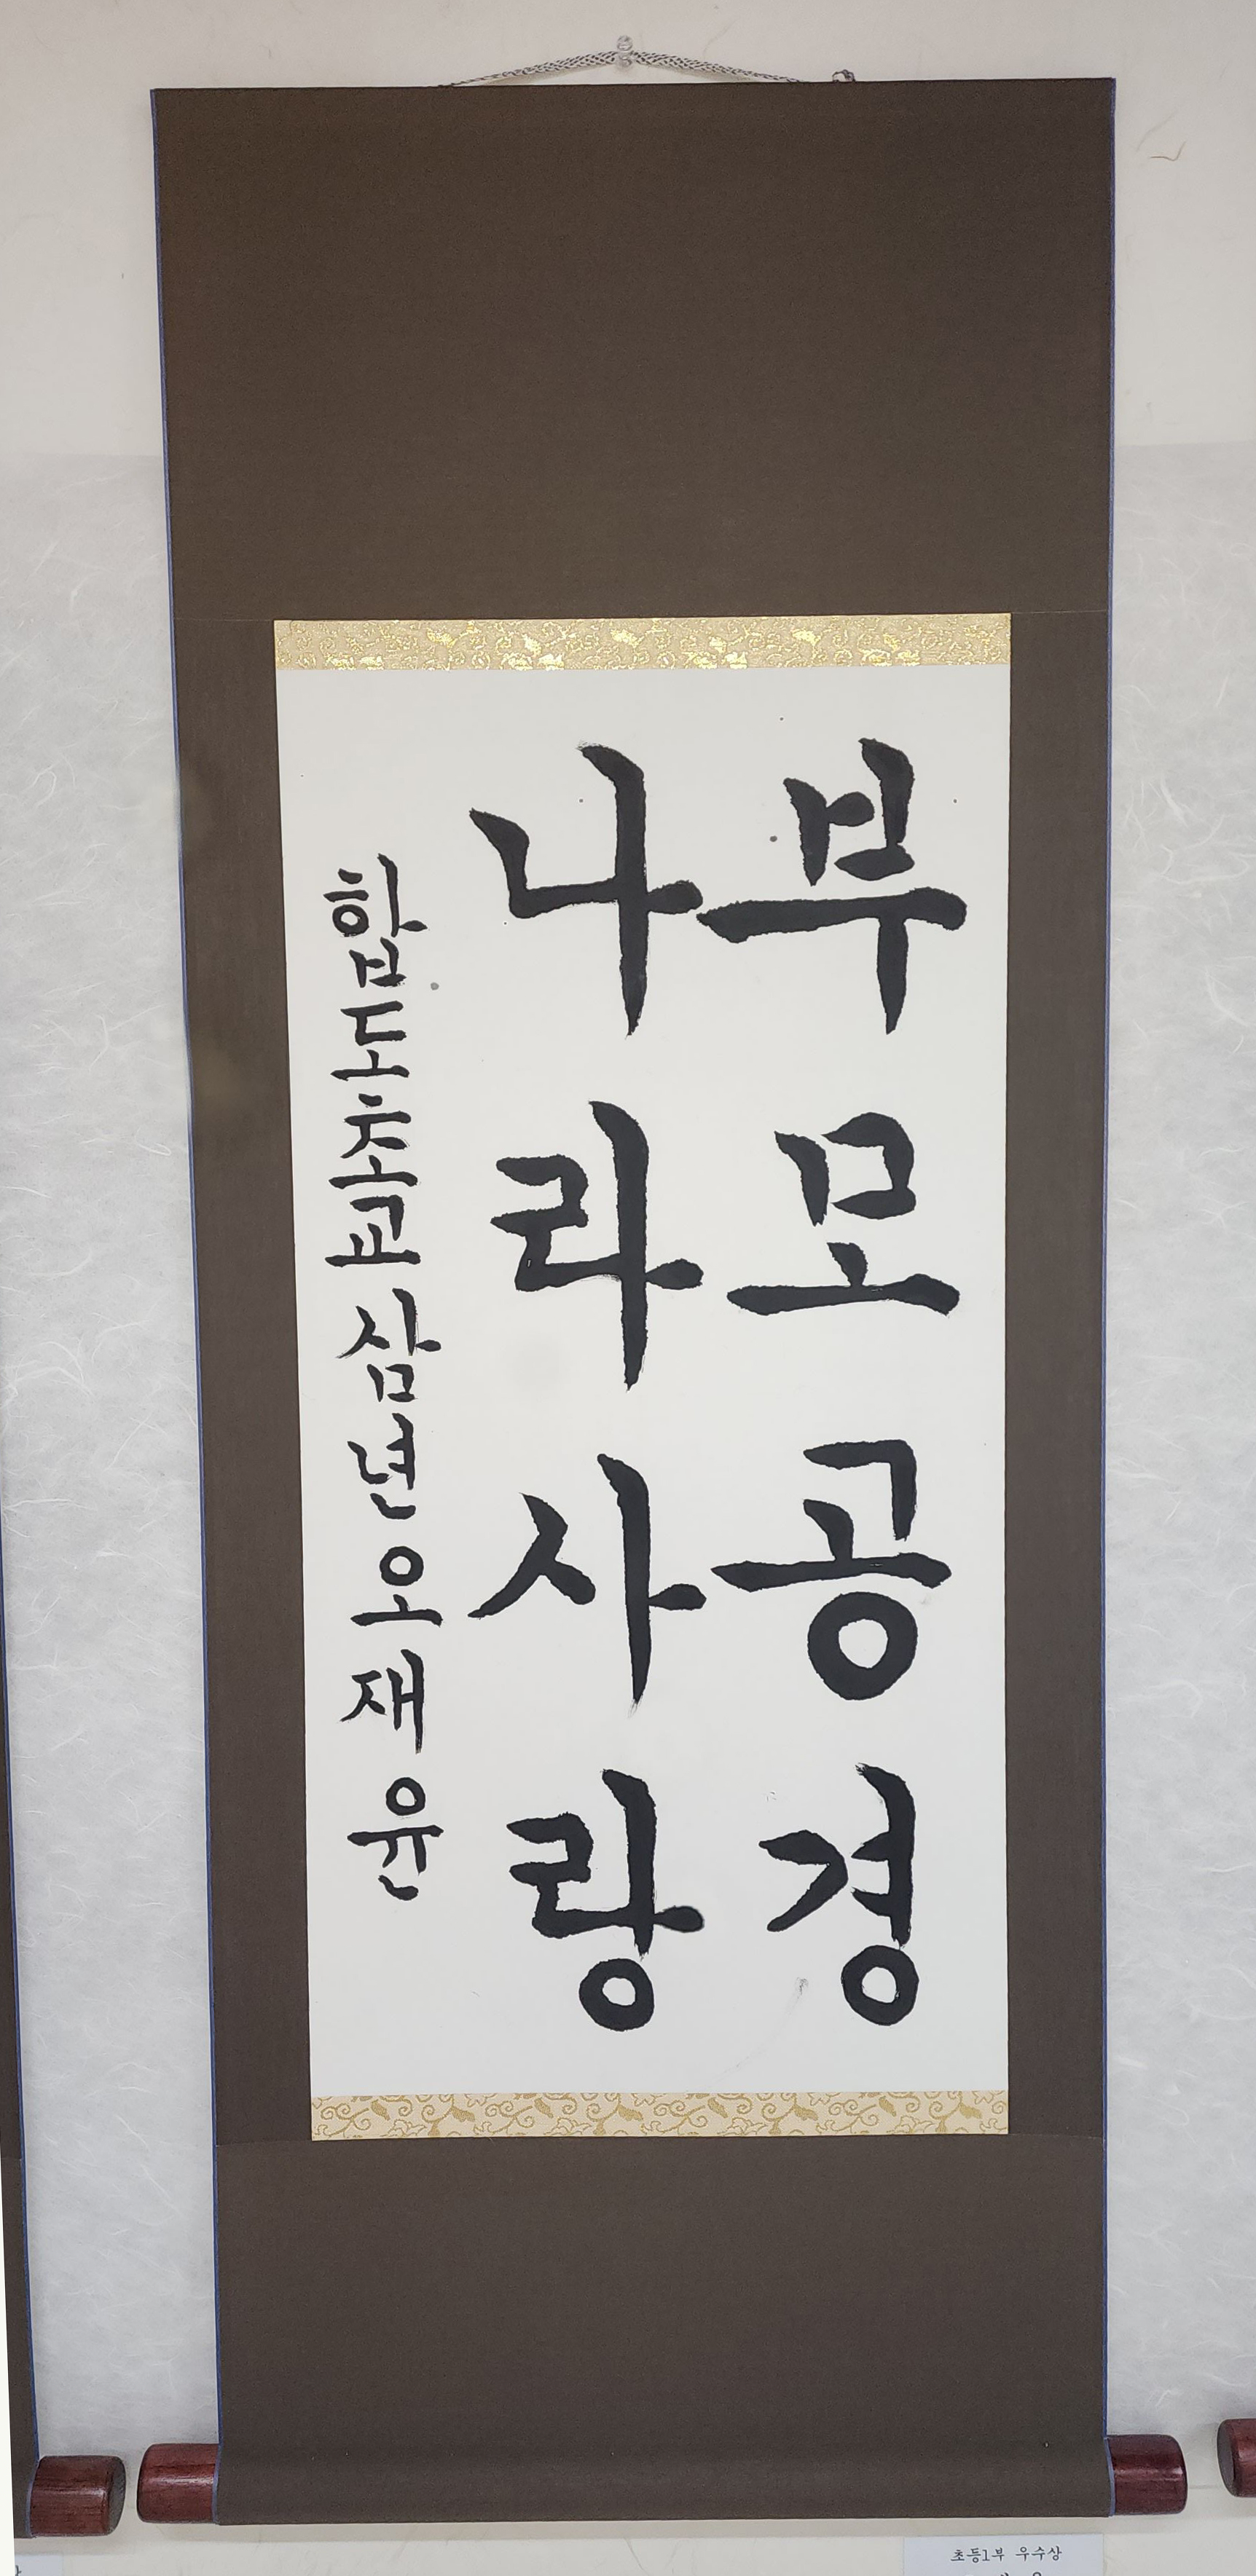 부모공경
나라사랑
합도초교 삼년 오재윤
초등1부 우수상